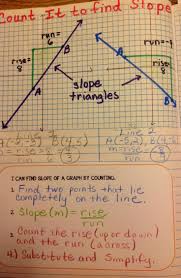 Count-It to find Slope
run=
6
rise=
8
B
A
run=-4
rise=
8
A
B
slope
triangles
Line 2
A(-2,-3) B(4,5)
m=rise
run
I CAN FIND SLOPE OF A GRAPH BY COUNTING.
1. Find two points that lie
completely on the line.
2. Slope(m) = rise
run
3. Count the rise (up or down)
and the run (across)
4.) Substitute and Simplify.